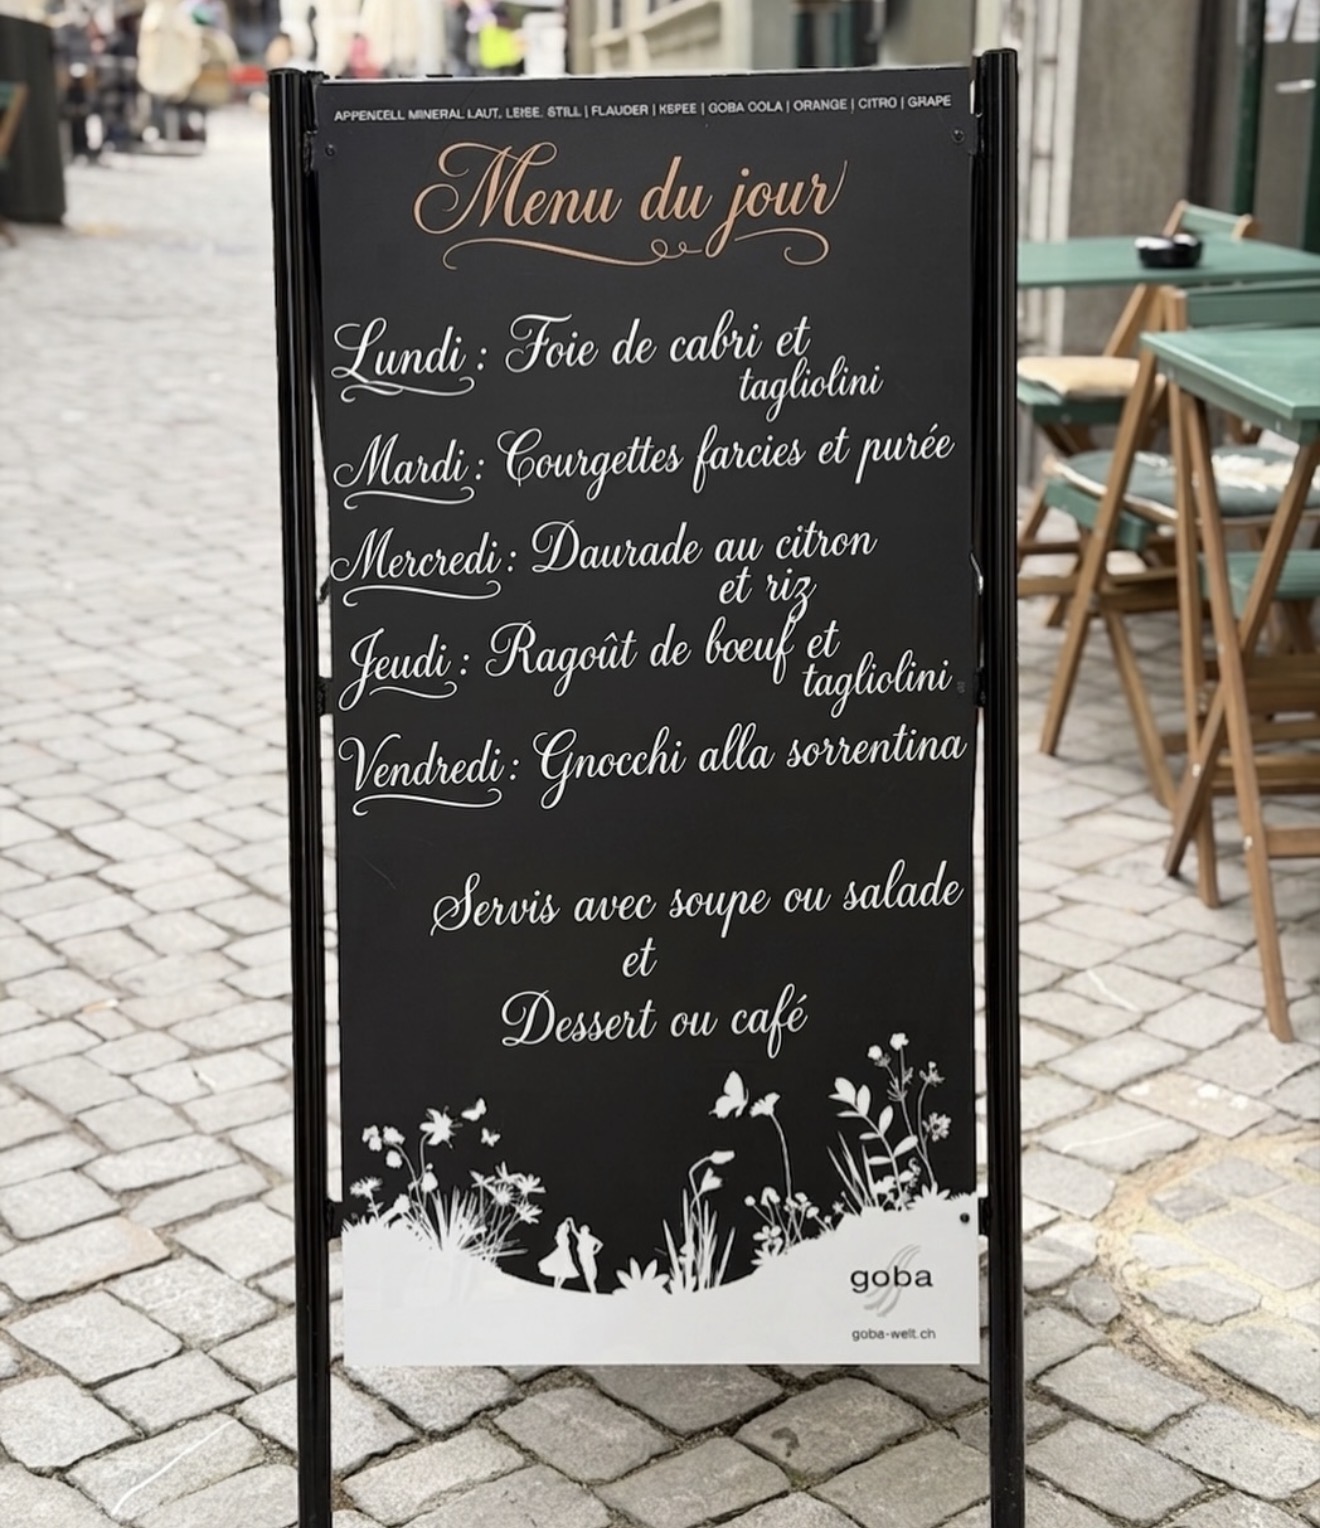 APPENZELL MINERAL LAUT, LEISE, STILL | FLAUDER | KEPEE | GOBA COLA | ORANGE | CITRO | GRAPE
Menu du jour
Lundi : Foie de cabri et
tagliolini
Mardi : Courgettes farcies et purée
Mercredi : Daurade au citron
et riz
Jeudi : Ragoût de bœuf et
tagliolini
Vendredi : Gnocchi alla sorrentina
Servis avec soupe ou salade
et
Dessert ou café
goba
goba-welt.ch